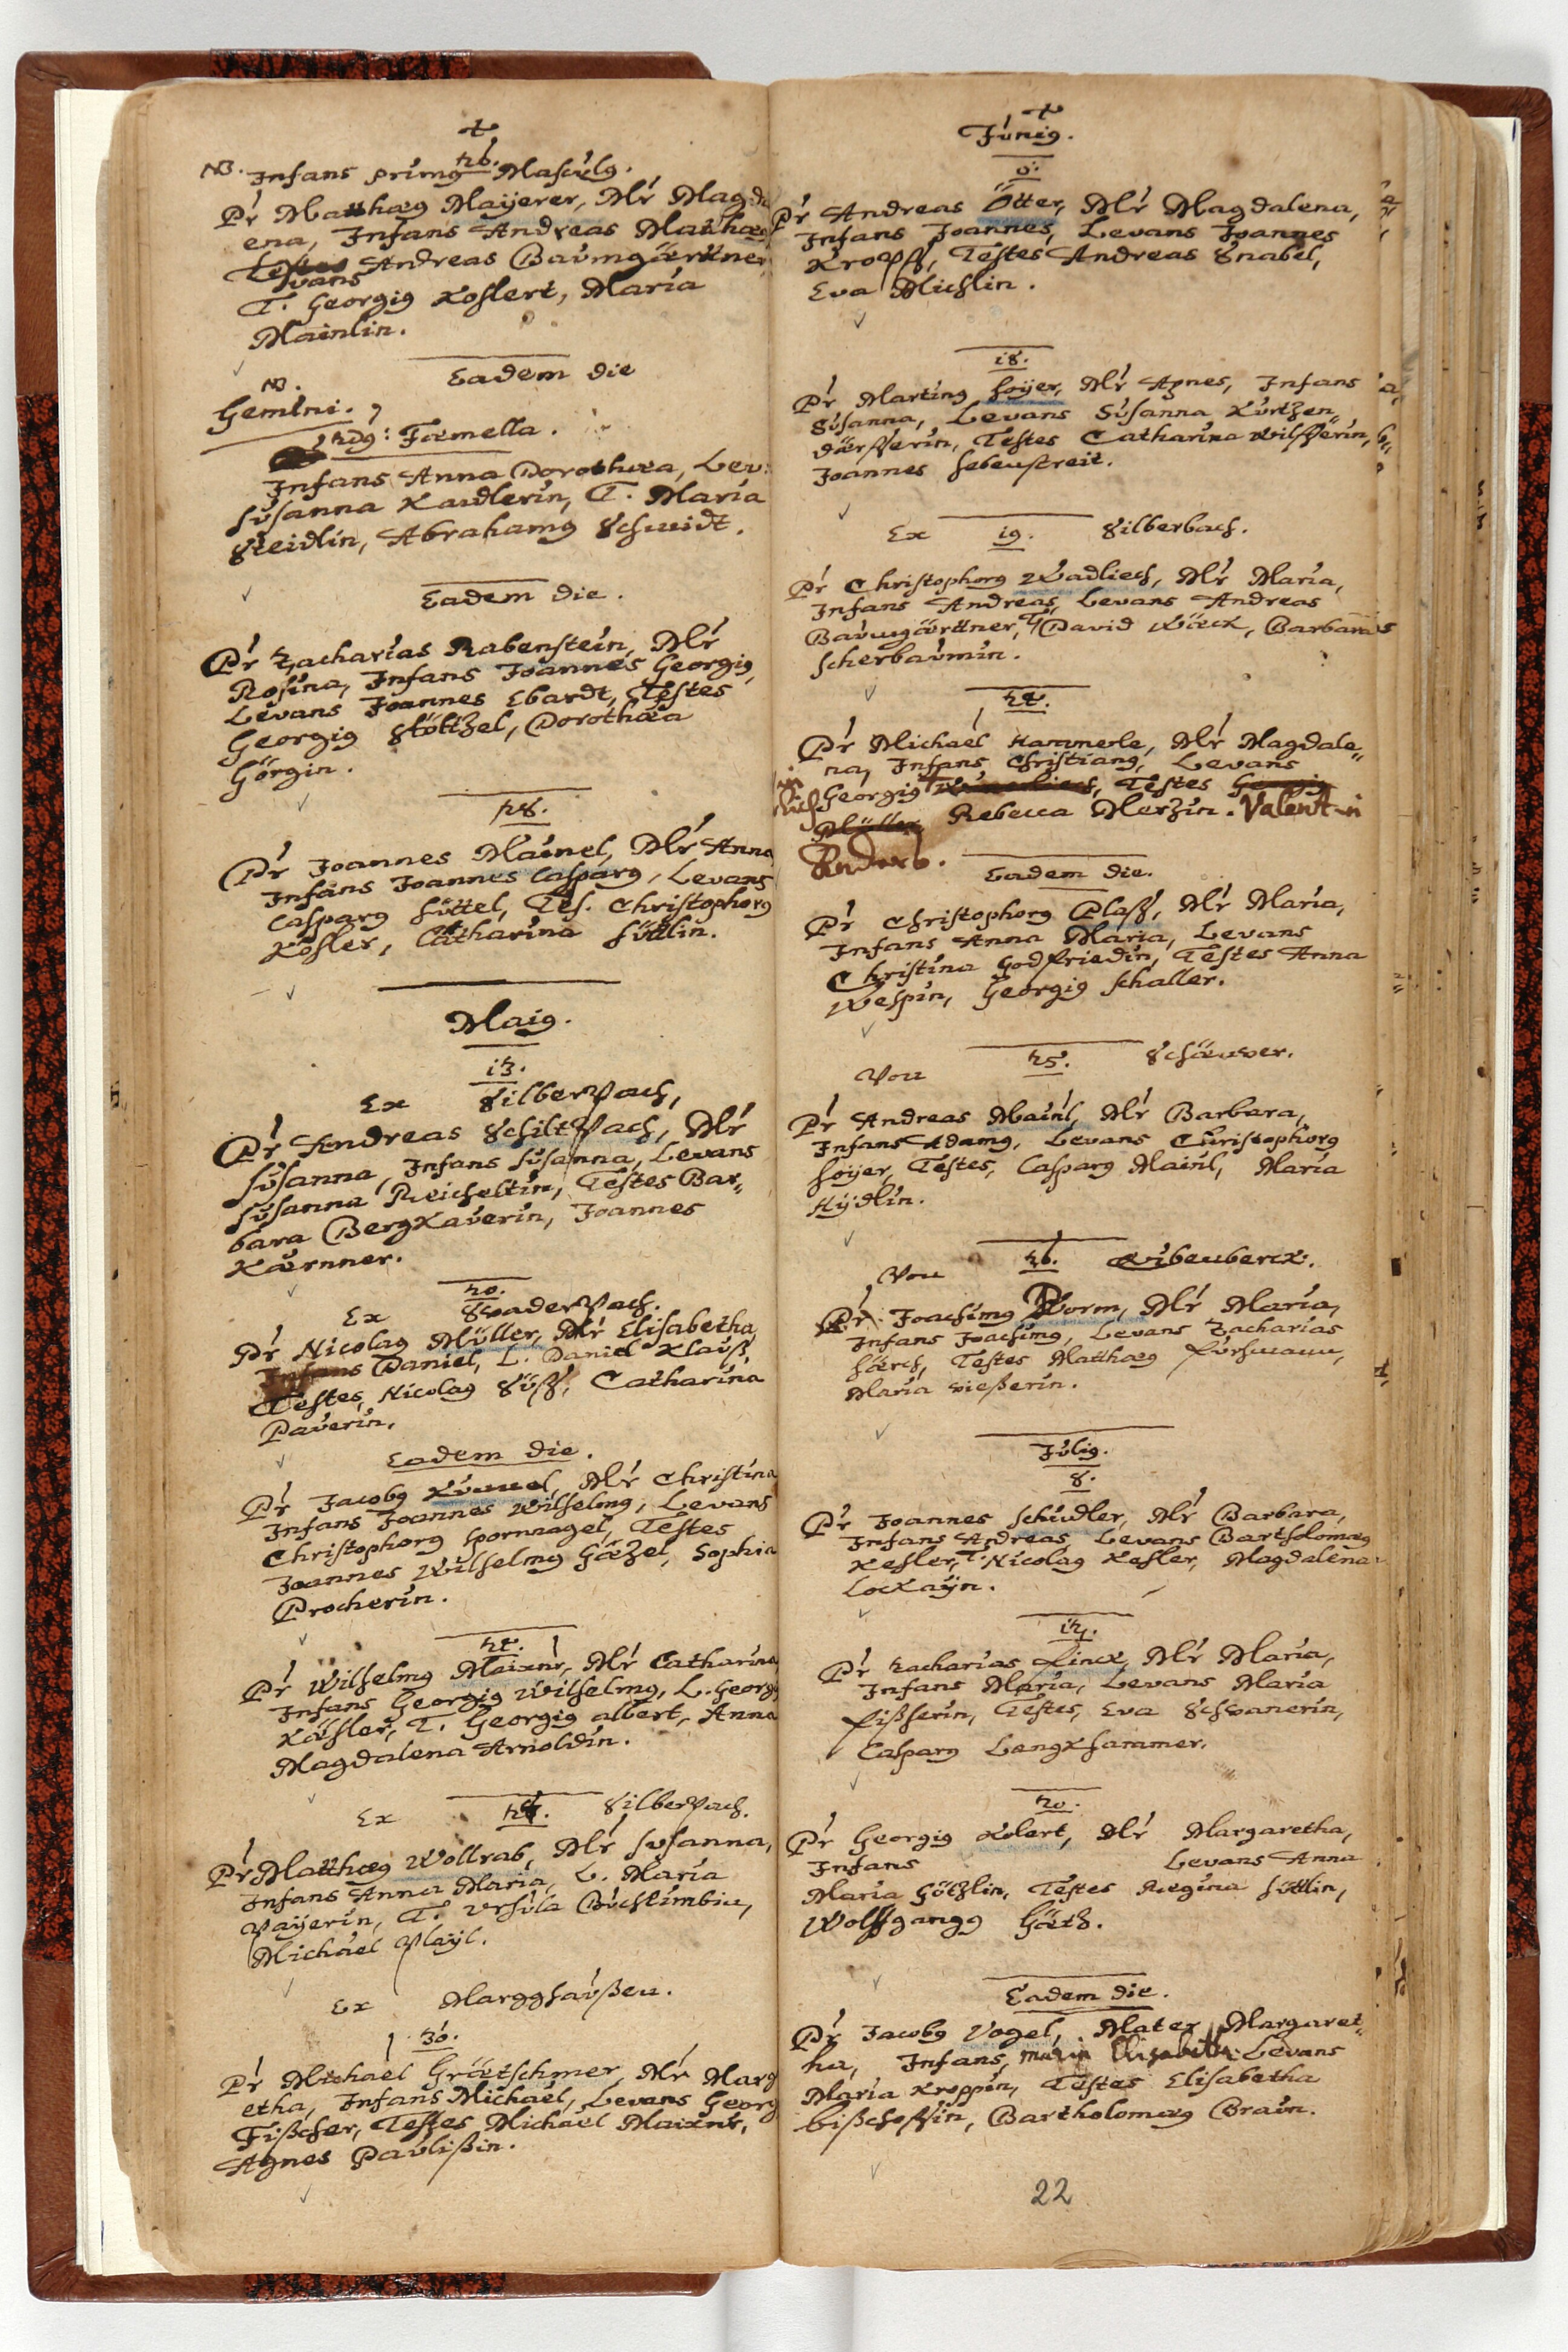 26.
NB. Infans primus Masculus.
Pr Matthæus Mayerer, Mr Magda
ena, Infans Andreas Matthæus
Levans Andreas Baumgärttner
T. Georgius Koslert, Maria
Mainlin.
Eadem die
NB.
Gemini.
2dus: Fœmella.
Infans Anna Dorothæa, Lev:
Susanna Kandlerin, T. Maria
Steidlin, Abrahamus Schmidt.
Eadem die.
Pr Zacharias Rabenstein, Mr
Rosina, Infans Joannes Georgius,
Levans Joannes Ebardt, Testes
Georgius Stöltzel, Dorothæa
Görgin.
28.
Pr Joannes Mainel, Mr Anna
Infans Joannes Casparus, Levans
Casparus Hüttel, Tes. Christophorus
Kösler, Catharina Hüttlin.
Maius.
13.
Ex Silberpach,
Pr Andreas Schiltpach, Mr
Susanna, Infans Susanna, Levans
Susanna Reicheltin, Testes Bar„
bara Bergkauerin, Joannes
Kærnner.
20.
Ex Schaderpach.
Pr Nicolaus Müller, Mr Elisabetha
Infans Daniel, L. Daniel Klauß,
Testes, Nicolaus Süß, Catharina
Pauerin.
Eadem die.
Pr Jacobus Kümel, Mr Christina
Infans Joannes Wilhelmus, Levans
Christophorus Spornnagel, Testes
Joannes Wilhelmus Gäzel, Sophia
Procherin.
24.
Pr Wilhelmus Maixnr, Mr Catharina
Infans Georgius Wilhelmus, L. Georgi
Käsler, T. Georgius albert, Anna
Magdalena Arnoldin.
Ex Silberpach.
Pr Matthæus Wollrab, Mr Susanna,
Infans Anna Maria, L. Maria
Payerin, T. Ursula
Michael Playl.
Ex Margghaußen.
30.
Pr Michael Grætschmer Mr Marg
etha, Infans Michael, Levans Georg
Fißcher, Testes Michael Maixnr,
Agnes Paulißin.
Junius.
Pr Andreas Ötter, Mr Magdalena,
Infans Joannes, Levans Joannes
Kropff, Testes Andreas Snabel,
Eva Michlin.
18.
Pr Martinus Hoyer, Mr Agnes, Infans
Susanna, Levans Susanna Kürtzen„
därfferin, Testes Catharina Wilfferin,
Joannes Hebenstreit.
Ex 19. Silberbach.
Pr Christophorus Wadliech, Mr Maria,
Infans Andreas, Levans Andreas
Baumgärttner, T, David Böck, Barbara
Scherbaumin.
24.
Pr Michael Hammerle, Mr Magdale„
na, Infans Christianus, Levans
Georgius Testes Georgius
Müller Rebecca Merzin. Valentin
Eadem die.
Pr Christophorus Plaß, Mr Maria,
Infans Anna Maria, Levans
Christina Godfriedin, Testes Anna
Wespin, Georgius Schaller.
Von 25. Schænver.
Pr Andreas Mainl, Mr Barbara,
Infans Adamus, Levans Christophorus
Hoyer, Testes, Casparus Mainl, Maria
Hÿdlin.
Von 26. Eibenberck.
Pr Joachimus Worm, Mr Maria,
Infans Joachimus, Levans Zacharias
Härch, Testes Matthæus Fuhrmann,
Maria Wießerin.
Julius.
8.
Pr Joannes Schindler, Mr Barbara,
Infans Andreas, Levans Bartholomæus
Kesler, T. Nicolaus Kesler, Magdalena
Lockayn.
12.
Pr Zacharias Finck, Mr Maria,
Infans Maria, Levans Maria
Fißherin, Testes, Eva Schwanerin,
Casparus Længkhammer.
20.
Pr Georgius Kolert, Mr Margaretha,
Infans Levans Anna
Maria Götzlin, Testes Regina Hüttlin,
Wolffgangus Gætz.
Eadem die.
Pr Jacobus Vogel, Mater Margaret„
ha, Infans, Maria Elisabetha Levans
Maria Kroppin, Testes Elisabetha
bißchoffin, Bartholomæus Braun.
22